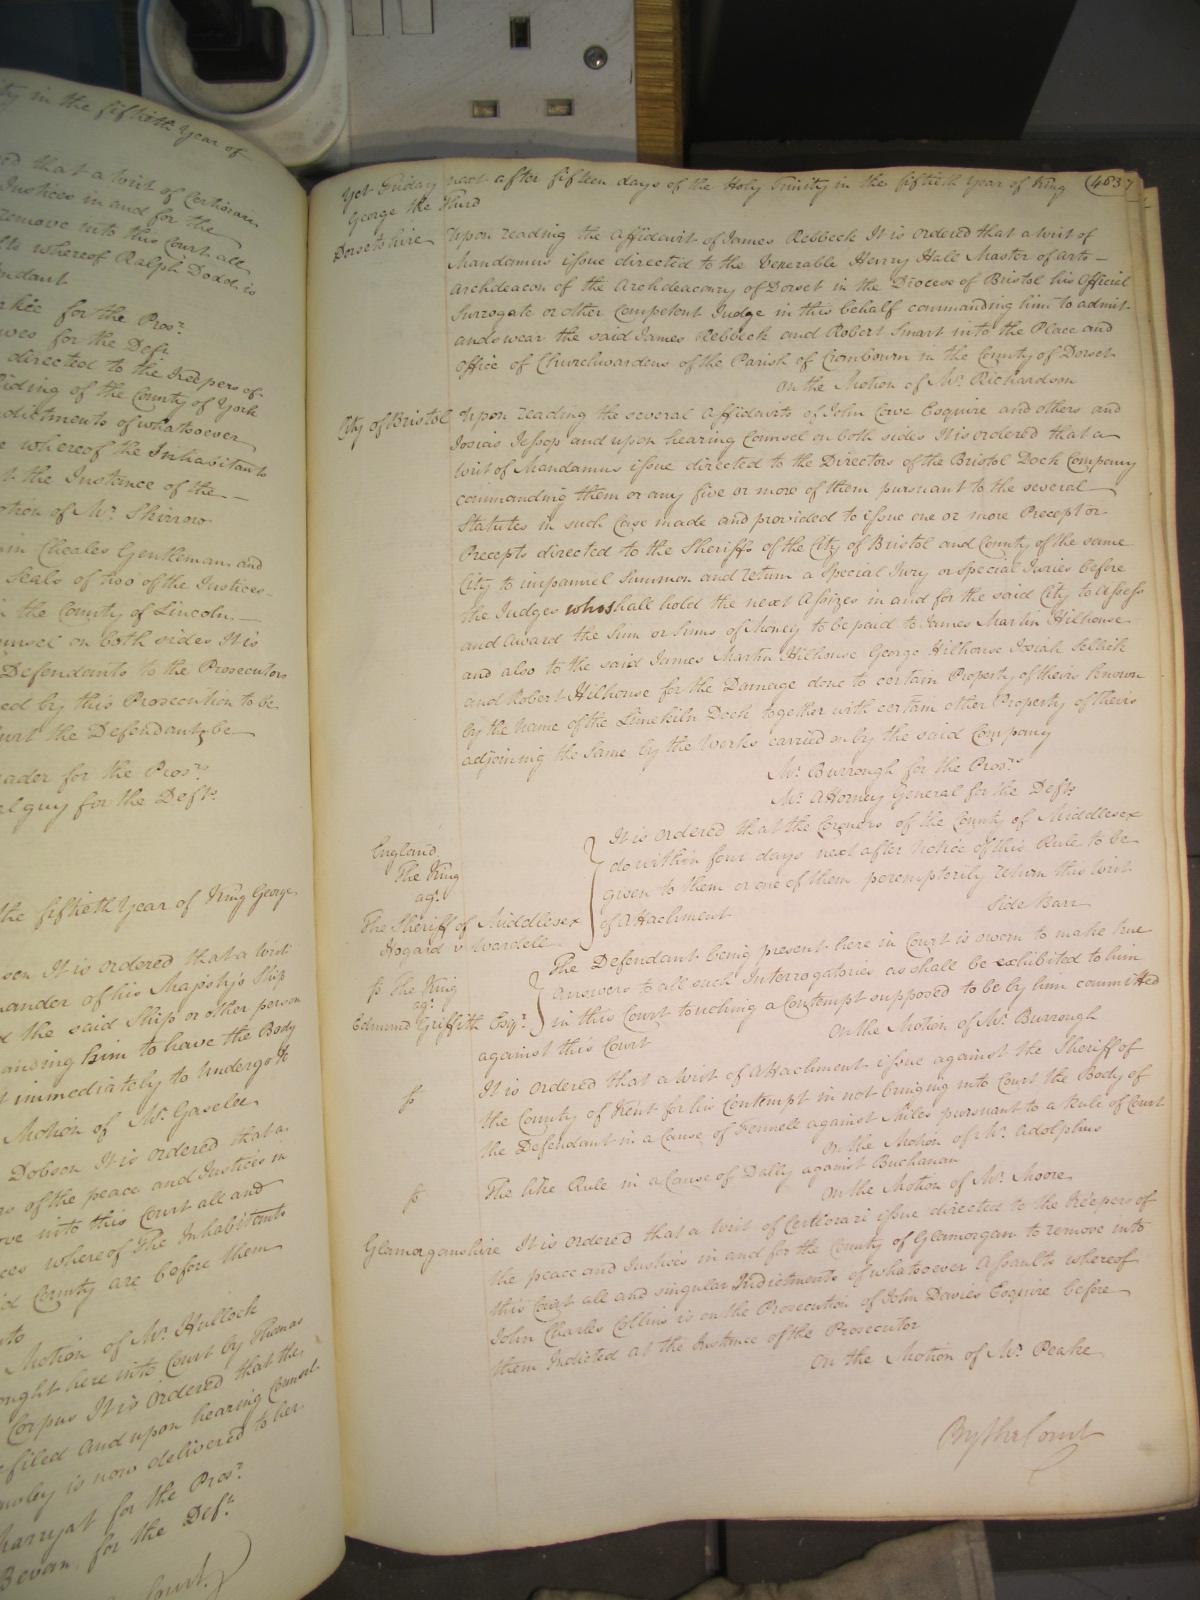 ty in the fiftieth Year of
ed that a Writ of Certiorari
Justices in and for the
remove into this Court all
lts whereof Ralph Dodd is
endant
for the Pros.r
for the Deft
directed to the Keepers of
Riding of the County of York
ndictments of whatsoever
e whereof the Inhabitants
t the Instance of the
otion of Mr. Shirrow
Cheales Gentleman and
Seals of two of the Justices
n the County of Lincoln
unsel on both sides It is
Defendants to the Prosecutors
ed by this Prosecution to be
urt the Defendants be
ader for the Pros.rs
el guy for the Defts.
the fiftieth Year of King George
sen It is ordered that a Writ
mander of his Majesty's Ship
d the said Ship or other person
anding him to have the Body
t immediately to undergo &c
Motion of Mr. Gaselee
Dobson It is ordered that a
rs of the peace and Justices in
ove into this Court all and
ces whereof The Inhabitants
id County are before them
nts
Motion of Mr. Hullock
ought here into Court by Thomas
Corpus It is ordered that the
filed And upon hearing Counsel
is now delivered to her
Marryat for the Pros.r
Bevan for the Def.t
Court
Yet Friday next after fifteen days of the Holy Trinity in the fiftieth Year of King (4637
George the Third
Dorsetshire Upon reading the Affidavit of James Rebbeck It is ordered that a Writ of
Mandamus issue directed to the Venerable Henry Hall Master of Arts
Archdeacon of the Archdeaconry of Dorset in the Diocese of Bristol his Official
Surrogate or other Competent Judge in this behalf commanding him to admit
and swear the said James Rebbeck and Robert Smart into the Place and
Office of Churchwardens of the Parish of Cranbourn in the County of Dorset
On the Motion of Mr. Richardson
City of Bristol Upon reading the several Affidavits of John Cave Esquire and others and
Josias Jessop and upon hearing Counsel on both sides It is ordered that a
Writ of Mandamus issue directed to the Directors of the Bristol Dock Company
commanding them or any five or more of them pursuant to the several
Statutes in such Case made and provided to issue one or more Precept or
Precepts directed to the Sheriffs of the City of Bristol and County of the same
City to impannel Summon and return a Special Jury or Special Juries before
the Judges who shall hold the next Assizes in and for the said City to Assess
and Award the Sum or Sums of Money to be paid to James Martin Hilhouse
and also to the said James Martin Hilhouse George Hilhouse Josiah
and Robert Hilhouse for the Damage done to certain Property of theirs known
by the Name of the Limekiln Dock together with certain other Property of theirs
adjoining the same by the Works carried on by the said Company
Mr. Burrough for the Pros.rs
Mr. Attorney General for the Defts
England
The King
ag.t
The Sheriff of Middlesex
Hogard v Wardell
It is ordered that the Coroners of the County of Middlesex
do within four days next after notice of this Rule to be
given to them or one of them peremptorily return this Writ
of Attachment
Side Barr
fs The King
ag.t
Edmund Griffith Esqr.
The Defendant being present here in Court is sworn to make true
Answers to all such Interrogatories as shall be exhibited to him
in this Court touching a Contempt supposed to be by him committed
against this Court
On the Motion of Mr. Burrough
fs It is ordered that a Writ of Attachment issue against the Sheriff of
the County of Kent for his Contempt in not bringing into Court the Body of
the Defendant in a Cause of Fennell against Miles pursuant to a Rule of Court
On the Motion of Mr. Adolphus
fs The like Rule in a Cause of Dally against Buchanan
On the Motion of Mr. Moore
Glamorganshire It is ordered that a Writ of Certiorari issue directed to the Keepers of
the peace and Justices in and for the County of Glamorgan to remove into
this Court all and singular Indictments of whatsoever Assaults whereof
John Charles Collins is on the Prosecution of John Davies Esquire before
them Indicted at the Instance of the Prosecutor
On the Motion of Mr. Peake
By the Court